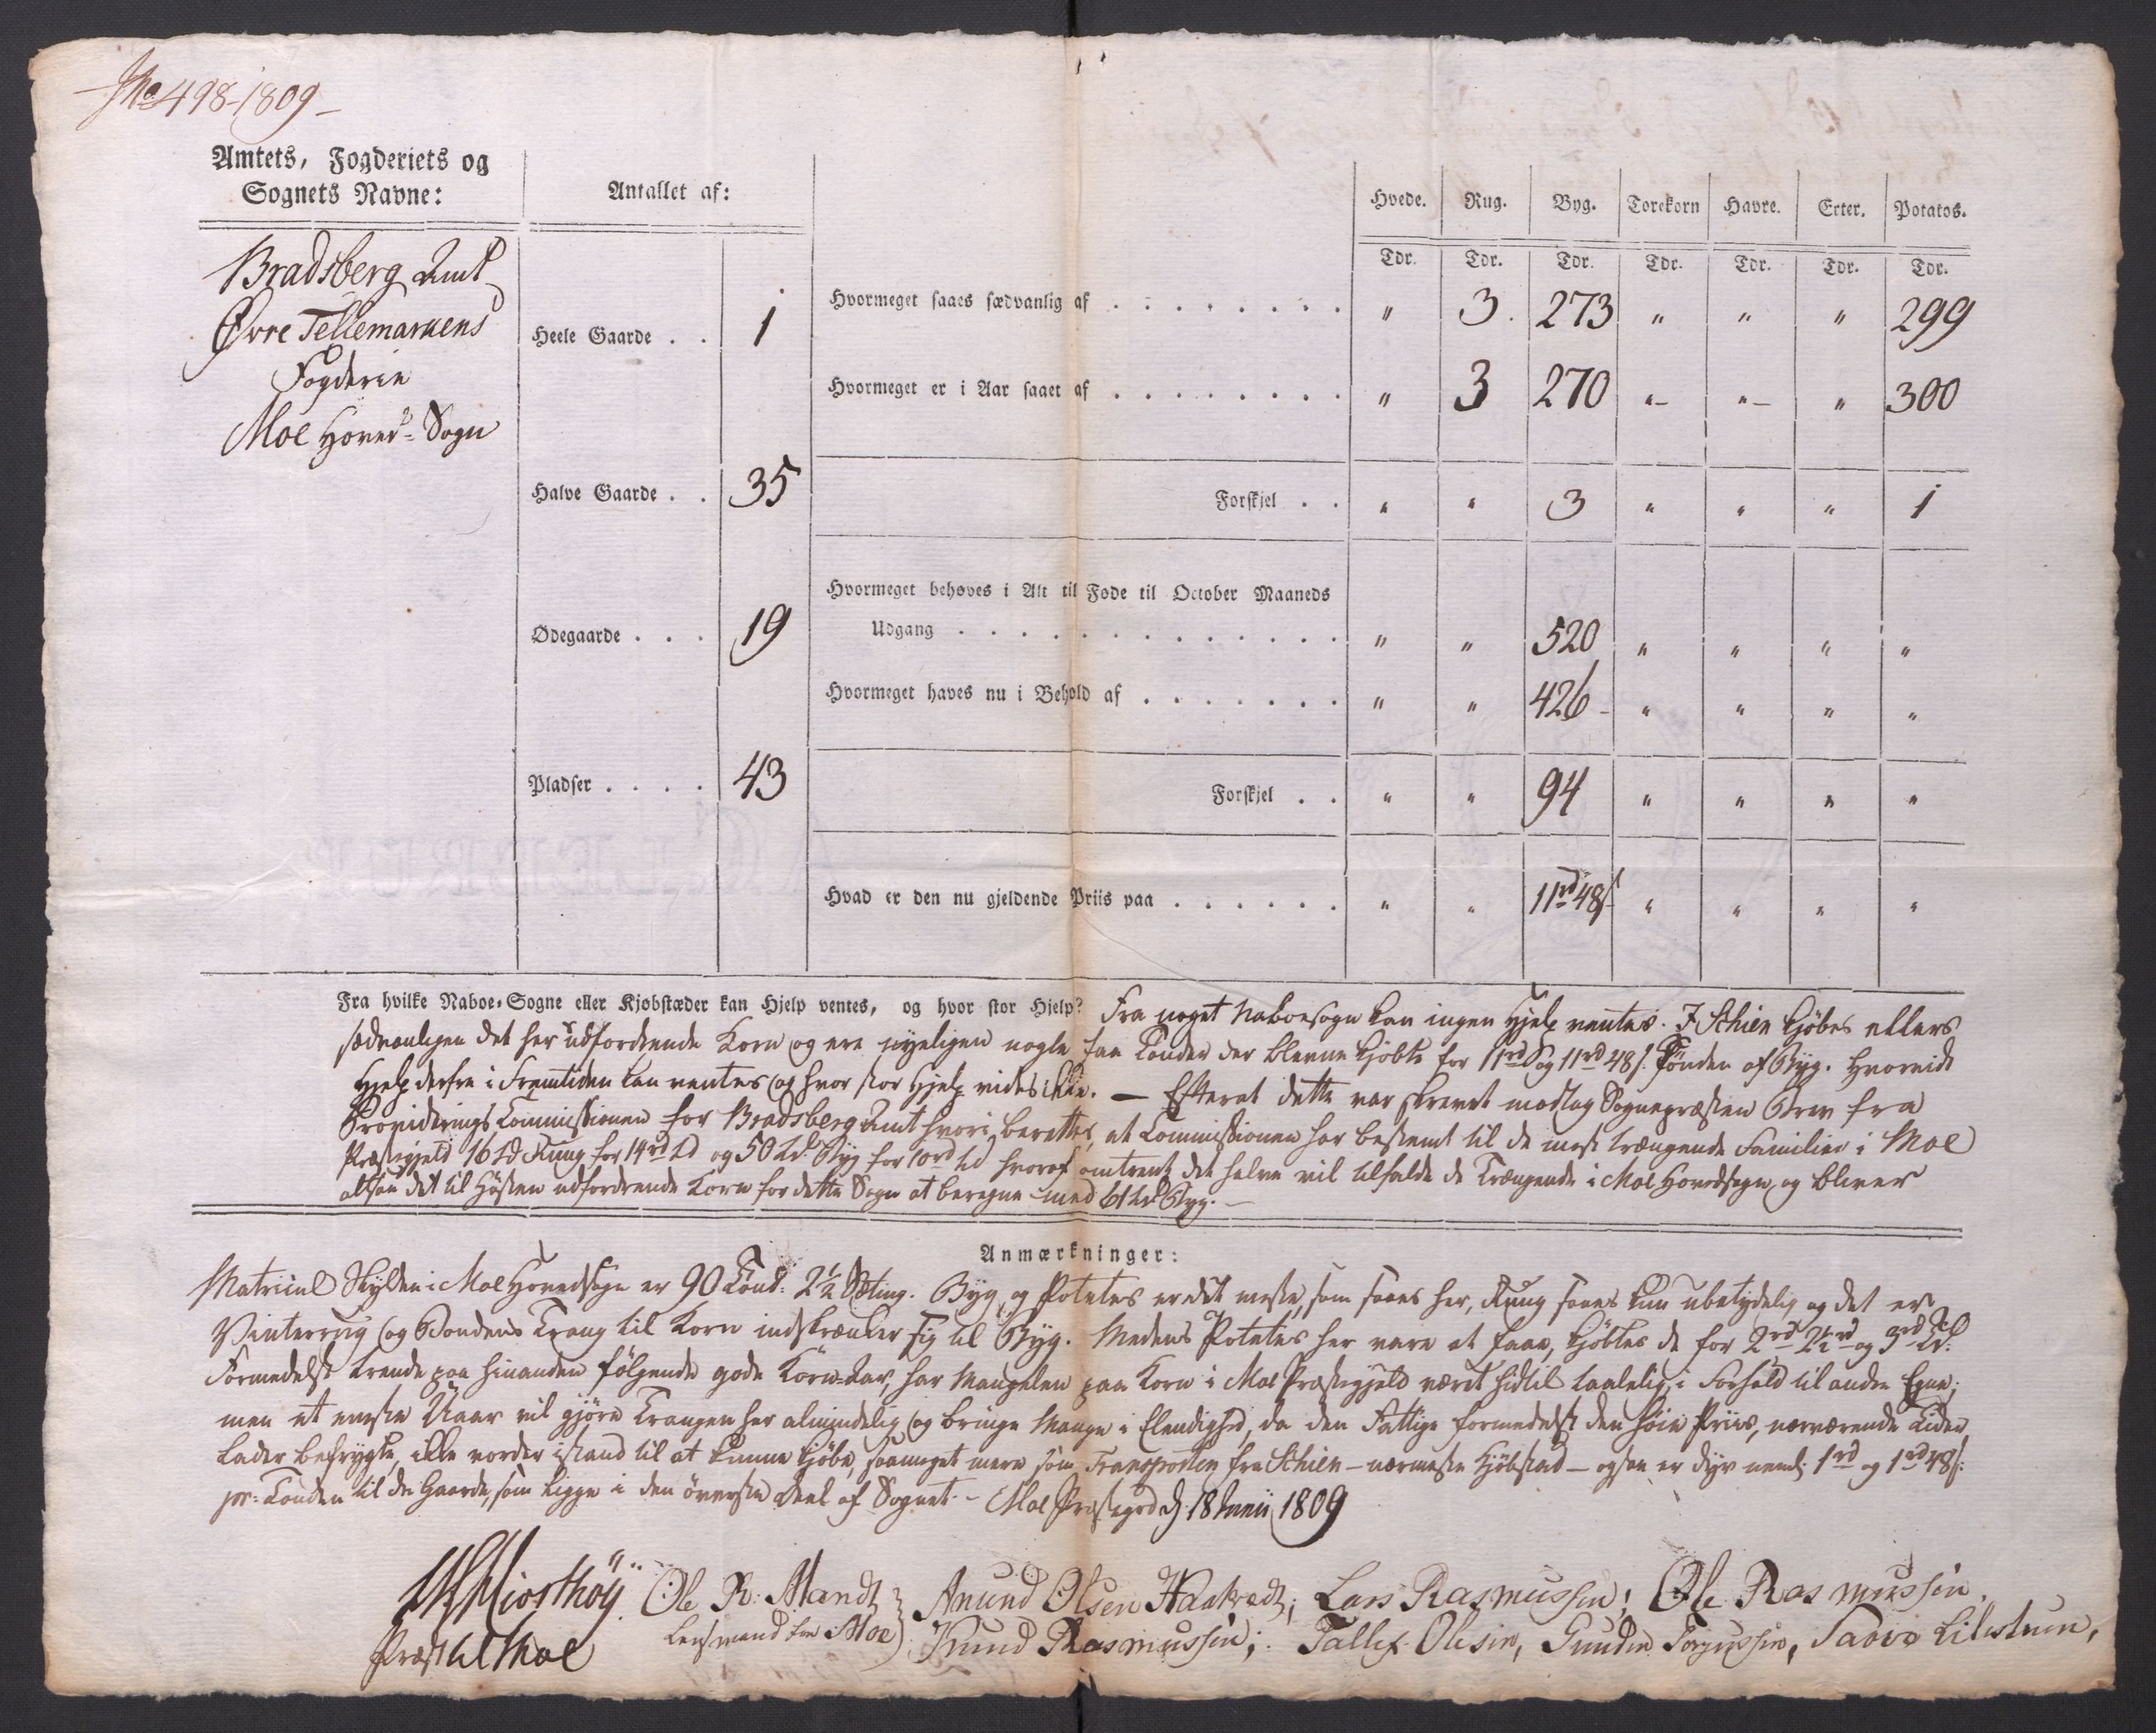 No 498-1809
Amtets, Fogderiets og
Sognets Navne:
Antallet af:
Hvede. Rug. Byg. Torekorn Havre. Erter. Potatos.
Tdr. Tdr. Tdr. Tdr. Tdr. Tdr. Tdr.
Bradsberg Amt
Øvre Tellemarkens
Fogderie
Moe Hoved-Sogn
Heele Gaarde . . 1
Halve Gaarde . . 35
Ødegaarde . . . 19
Pladser . . . . 43
Hvormeget saaes sædvanlig af . . . . . . . . " 3. 273 " " " 299
Hvormeget er i Aar saaet af . . . . . . . . " 3 270 " " " 300
Forskjel . . " " 3 " " " 1
Hvormeget behøves i Alt til Føde til October Maaneds
Udgang . . . . . . . . . . . . . " " 520 " " " "
Hvormeget haves nu i Behold af . . . . . . . " " 426 " " " "
Forskjel . . " " 94 " " " "
Hvad er den nu gjeldende Priis paa . . . . . . " " 11rd 48s " " " "
Fra hvilke Naboe-Sogne eller Kjøbstæder kan Hjelp ventes, og hvor stor Hjelp? Fra noget Naboesogn kan ingen Hjelp ventes. I Schien kjøbes ellers
sædvanligen det her udfordrende Korn og ere nyeligen nogle faa Tønder der blevne kjøbte for 11rd og 11rd 48s. Tønden af Byg. Hvorvidt
Hjelp derfra i Fremtiden kan ventes og hvor stor Hjelp vides ikke. — Efterat dette var skrevet modtog Sognepræsten Brev fra
Providerings Commissionen for Bradsberg Amt hvori berettes, at Commissionen har bestemt til de mest trængende Familier i Moe
Præstegjeld 16 Td Rung for 14rd Td og 50 Td. Byg for 10rd Td hvoraf omtrent det halve vil tilfalde de Trængende i Moe Hovedsogn, og bliver
altsaa det til Høsten udfordrende Korn for dette Sogn at beregne med 61 Td Byg. —
Anmærkninger:
Matricul Skylden i Moe Hovedsogn er 90 Tønd: 2½ Sæting. Byg og Potetes er det meste, som saaes her, Rung saaes kun ubetydelig og det er
Vinterrug og Bondens Trang til Korn indskrænker sig til Byg. Medens Potetes her vare at faae, kjøbtes de for 2rd 2½rd og 3rd Td.
Formedelst trende paa hinanden følgende gode Korn-Aar, har Mangelen paa Korn i Moe Præstegjeld været hidtil taalelig i Forhold til andre Egne;
men et eneste Uaar vil gjøre Trangen her almindelig og bringe Mange i Elendighed, da den Fattige formedelst den høie Priis, nærværende Tider
lader befrygte, ikke vorder istand til at kunne kjøbe, saameget mere som Transporten fra Schien – nærmeste Kjøbstad – ogsaa er dyr neml: 1rd og 1rd 48s:
pr: Tønden til de Gaarde, som ligge i den øverste Deel af Sognet. – Moe Præstegrd d. 18 Junii 1809
Kiosthøy. Ole R: Mandt Anund Olsen Haatvedt; Lars Rasmussen; Ole Rasmussøn.
Præst til Moe Lensmand for Moe Knud Rasmussøn; Tallef Olesøn, Gunder Torjussøn, Taavo Lilestuen,